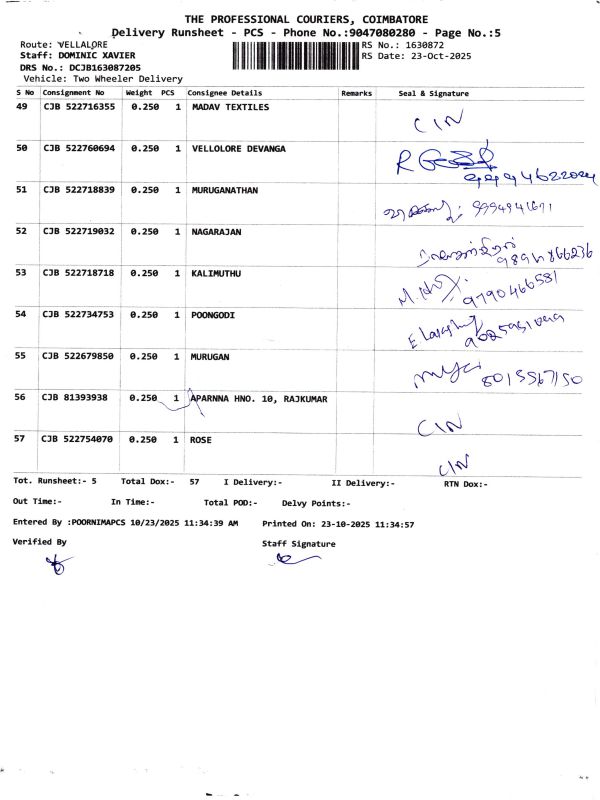 THE PROFESSIONAL COURIERS, COIMBATORE
Delivery Runsheet - PCS - Phone No.:9047080280 - Page No.:5
Route: VELLALORE
RS No.: 1630872
Staff: DOMINIC XAVIER
RS Date: 23-Oct-2025
DRS No.: DCJB163087205
Vehicle: Two Wheeler Delivery
S No Consignment No Weight PCS Consignee Details Remarks Seal & Signature
49 CJB 522716355 0.250 1 MADAV TEXTILES
CIN
50 CJB 522760694 0.250 1 VELLOLORE DEVANGA
51 CJB 522718839 0.250 1 MURUGANATHAN
52 CJB 522719032 0.250 1 NAGARAJAN
53 CJB 522718718 0.250 1 KALIMUTHU
9790466581
54 CJB 522734753 0.250 1 POONGODI
55 CJB 522679850 0.250 1 MURUGAN
8015567150
56 CJB 81393938 0.250 1 APARNNA HNO. 10, RAJKUMAR
CIN
57 CJB 522754070 0.250 1 ROSE
CIN
Tot. Runsheet:- 5 Total Dox:- 57 I Delivery:- II Delivery:- RTN Dox:-
Out Time:- In Time:- Total POD:- Delvy Points:-
Entered By :POORNIMAPCS 10/23/2025 11:34:39 AM Printed On: 23-10-2025 11:34:57
Verified By Staff Signature